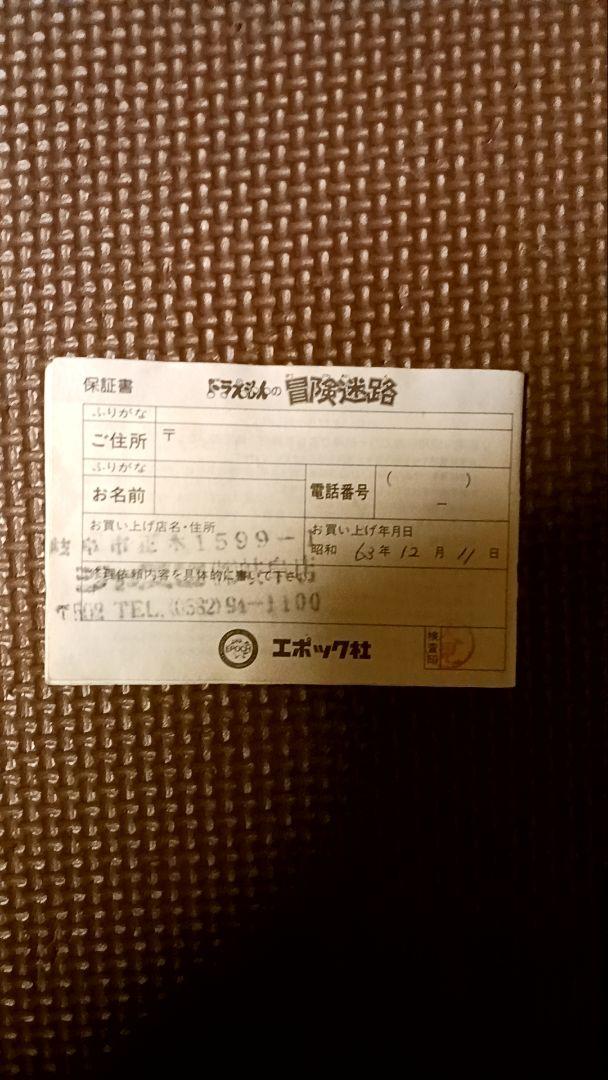 保証書 ドラえもんの冒険迷路
ふりがな
ご住所 〒
ふりがな
お名前 電話番号 ( ) －
お買い上げ店名・住所 お買い上げ年月日
岐阜市正木1599-1 昭和 63年 12月 11日
修理依頼内容を具体的に書いて下さい
〒502 TEL.(0582)94-1100
EPOCH エポック社 検査印